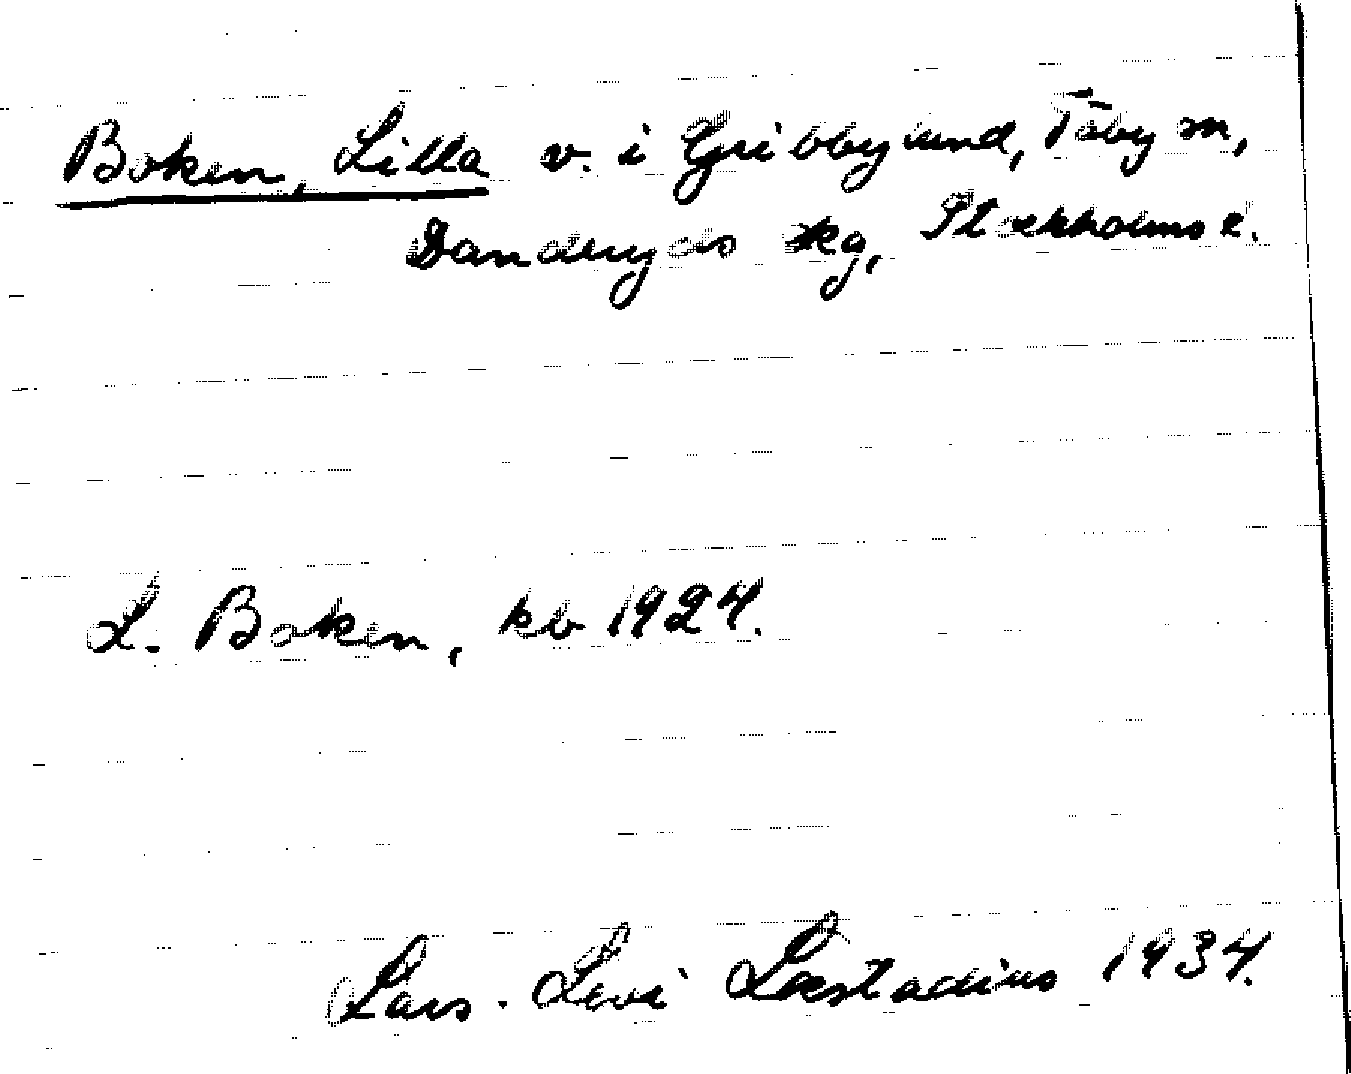 Boken, Lilla v. i Gribbylund, Täby sn,
Danderyds skg, Stockholms l.
L. Boken, kb 1924.
Lars-Levi Læstadius 1934.